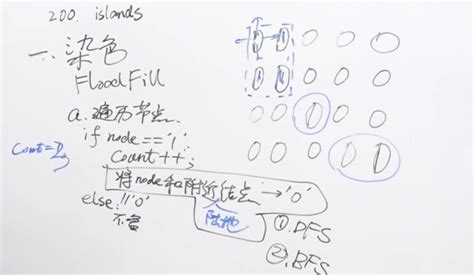 200. islands
一、染色
FloodFill
a. 遍历节点.
if node == '1':
count++;
将node和附近结点 → '0'
陆地
else: '0'
不管
①. DFS
②. BFS
0 0 0
0 0 0
0 0 0
0 0